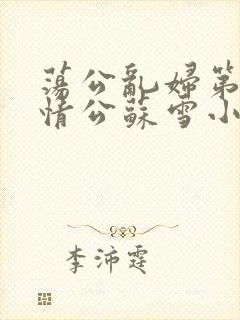 荡公乱婦第
情公蘇雪小
李沛霆